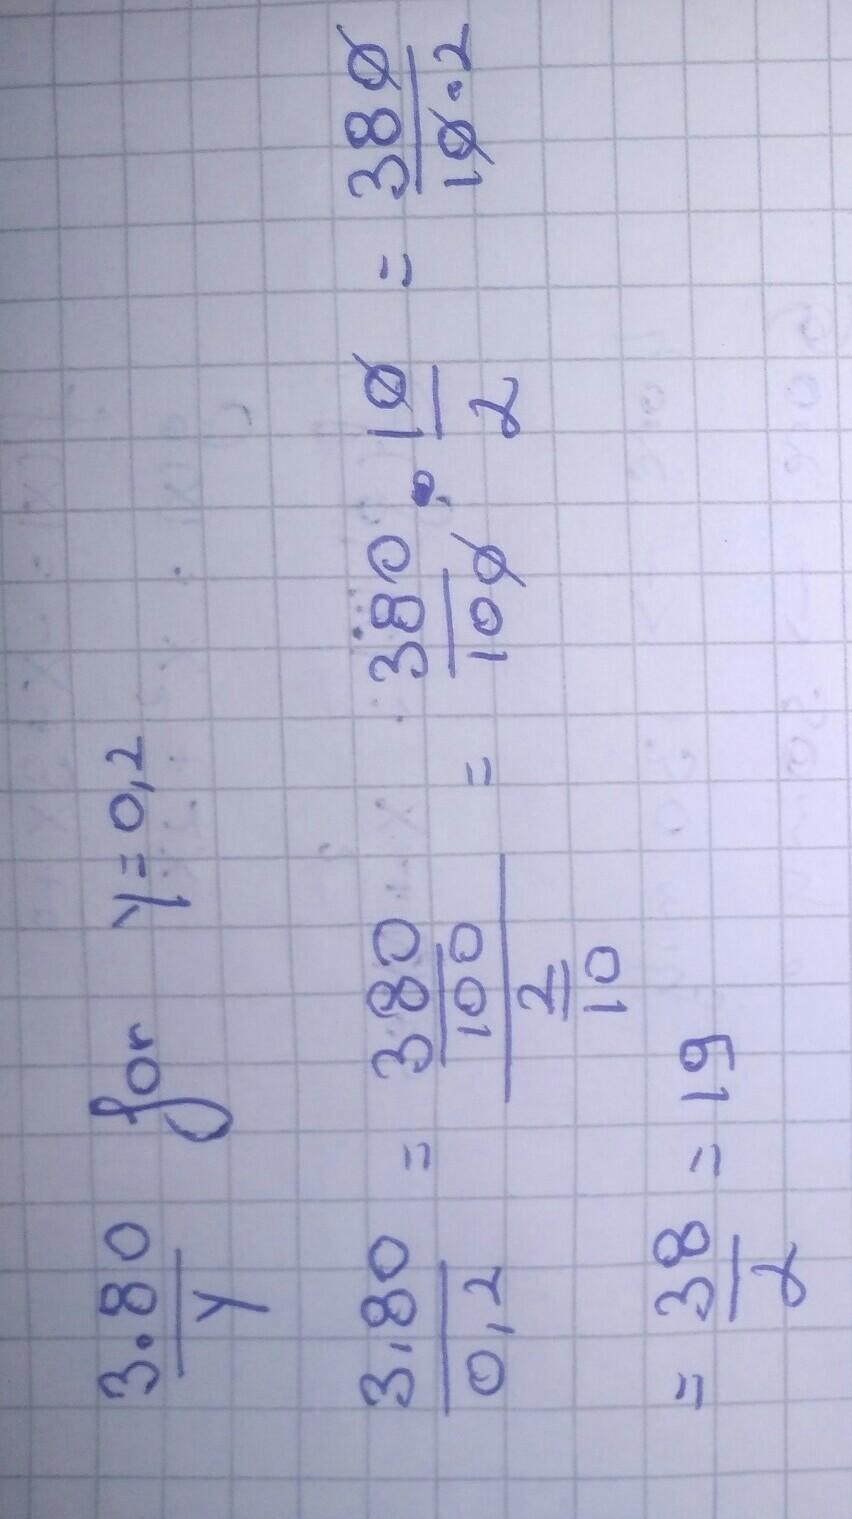 3.80/y for y=0,2
3,80/0,2 = 380/100 / 2/10 = 380/100 · 10/2 = 380/10·2
= 38/2 = 19